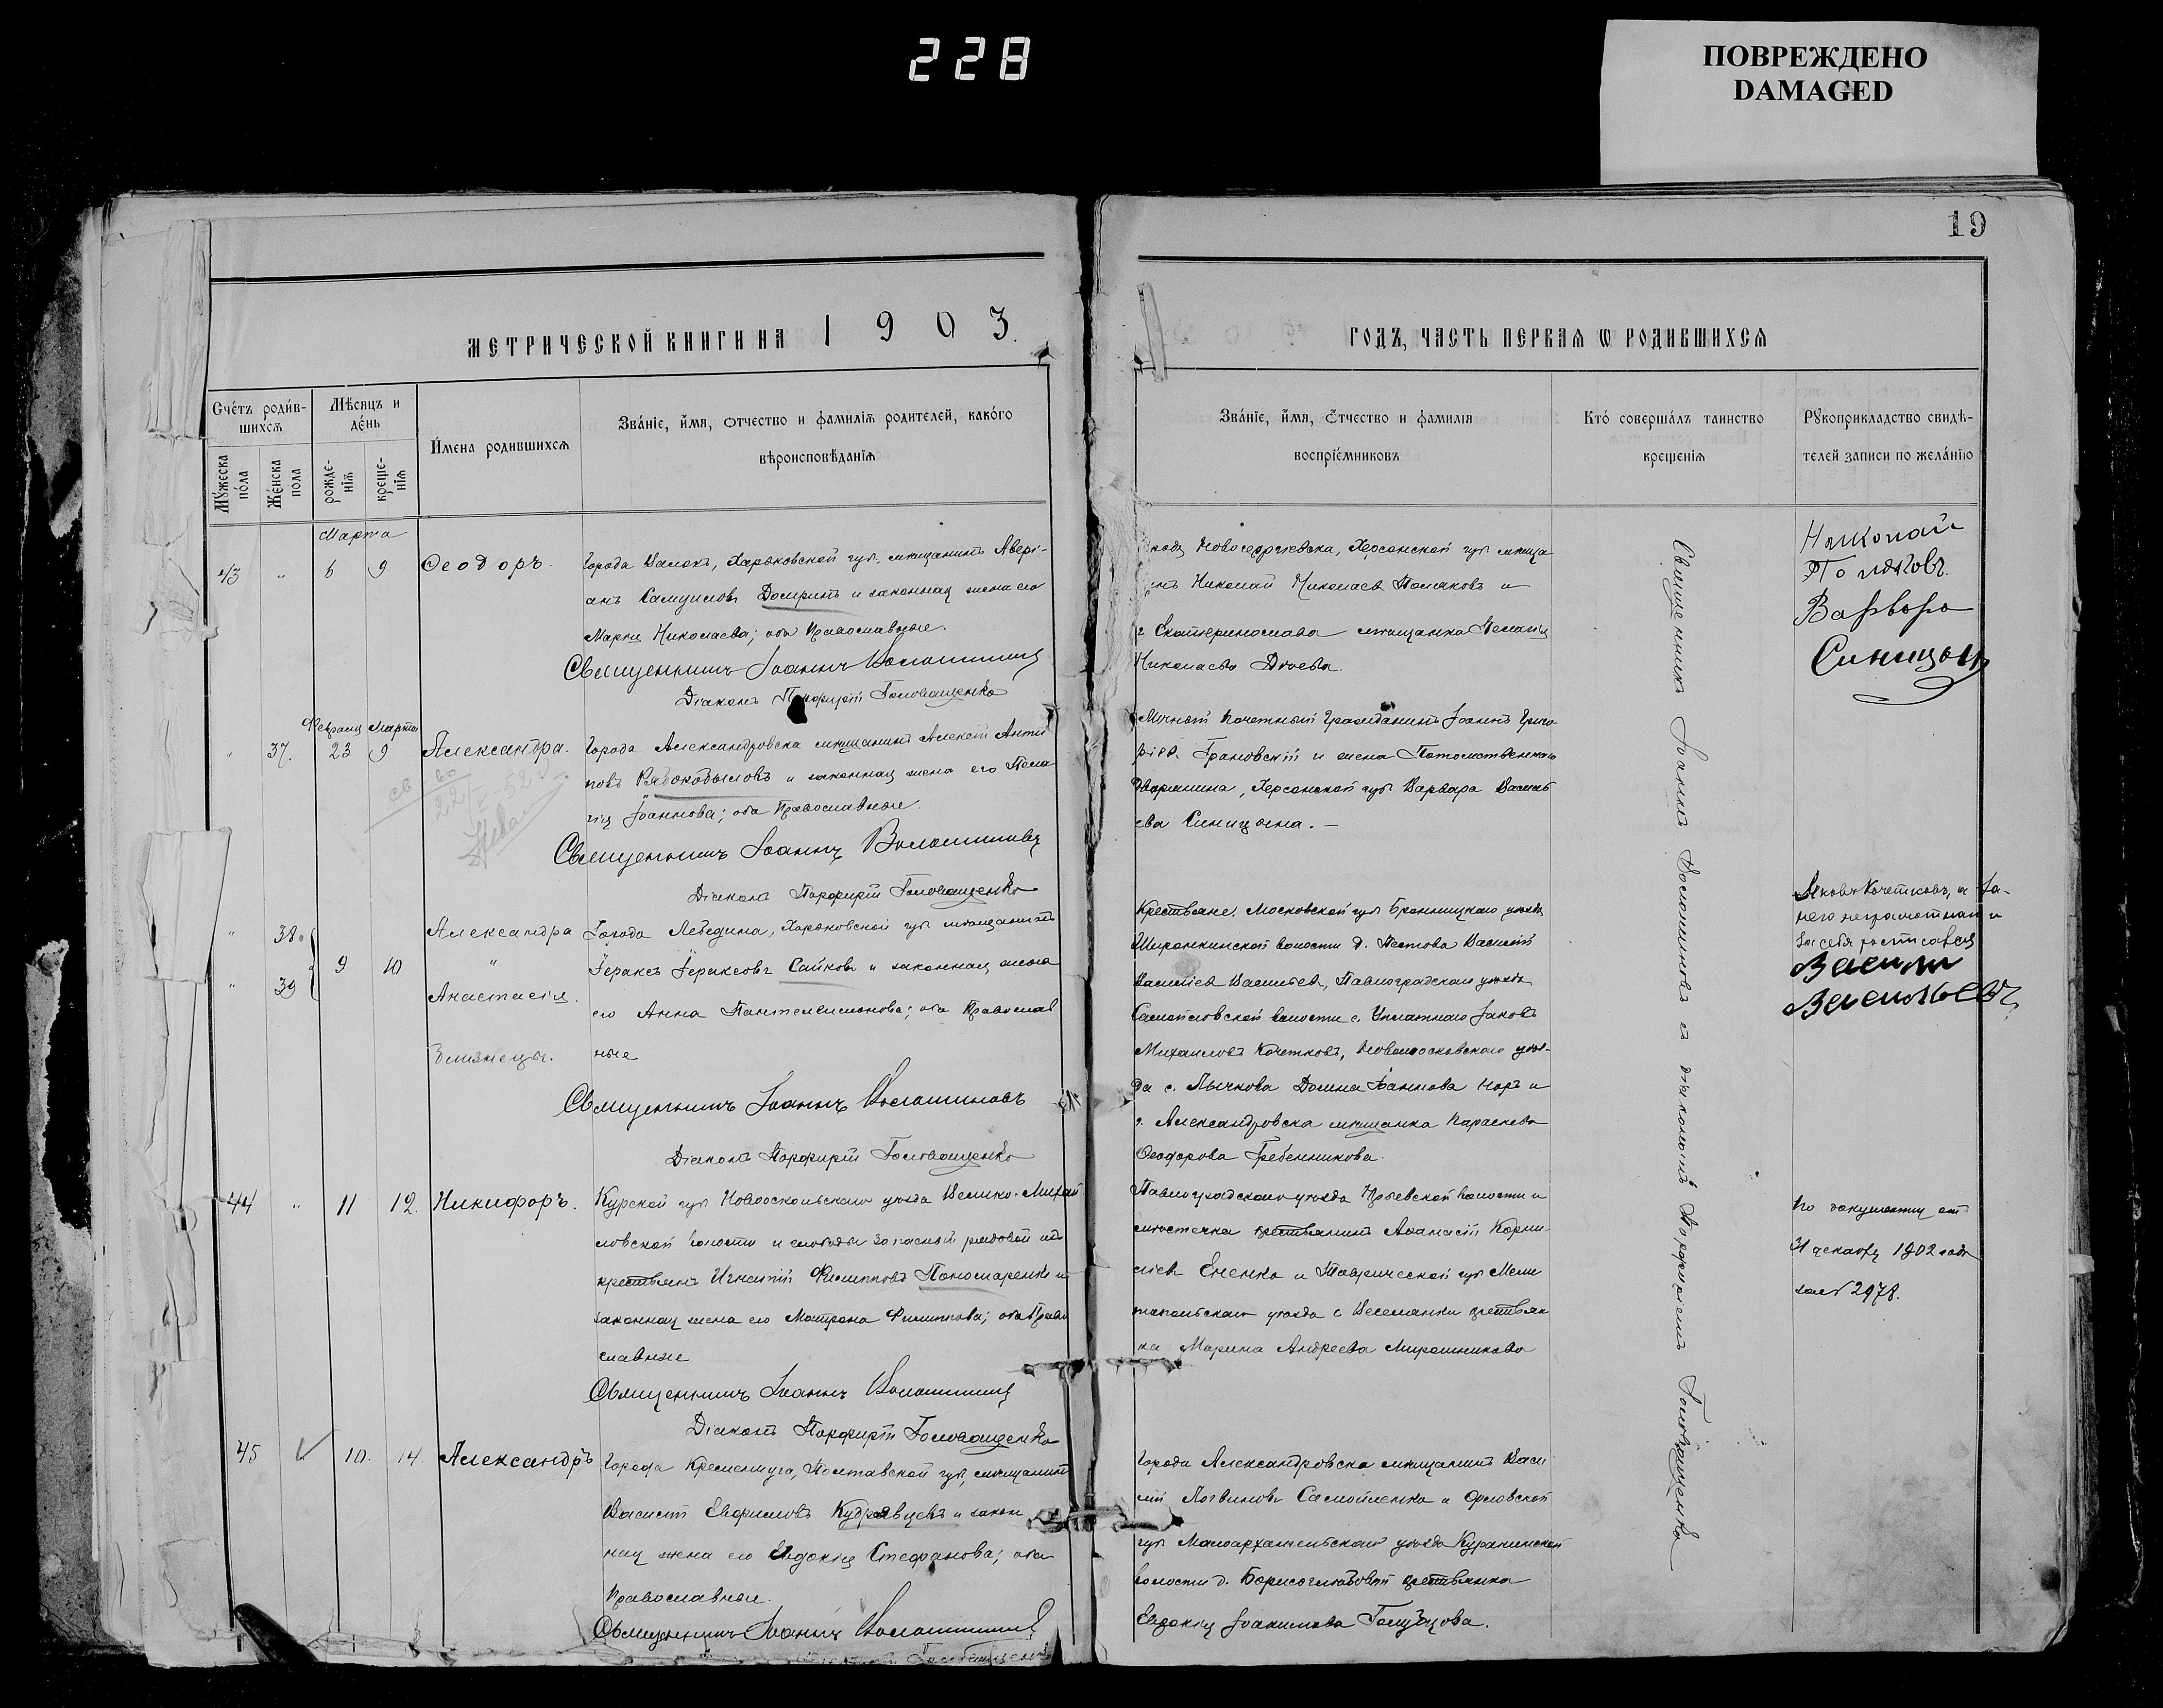 228
ПОВРЕЖДЕНО
DAMAGED
19
МЕТРИЧЕСКОЙ КНИГИ НА 1903.
ГОДЪ, ЧАСТЬ ПЕРВАЯ Ѡ РОДИВШИХСЯ
Счетъ родив-
шихся
Мѣсяцъ и
день
Мужеска
пола
Женска
пола
рожде-
нія
креще-
нія
Имена родившихся
Званіе, имя, отчество и фамилія родителей, какого
вѣроисповѣданія
Званіе, имя, отчество и фамилія
воспріемниковъ
Кто совершалъ таинство
крещенія
Рукоприкладство свидѣ-
телей записи по желанію
Марта
43 " 6 9 Ѳеодоръ.
Города Валокъ, Харьковской губ. мѣщанинъ Авері-
анъ Самуиловъ и законная жена его
Марія Николаева; оба Православные.
Священникъ Іоаннъ Волошиновъ
Діаконъ Порфирій Головащенко
Города Новогеоргіевска, Херсонской губ мѣща-
нинъ Николай Николаевъ Поляковъ и
г Екатеринослава мѣщанка Пелагія
Николаева
Николай
Поляковъ.
Варвара
Синицына
Февраля Марта
" 37. 23 9 Александра.
Города Александровска мѣщанинъ Алексѣй Анти
повъ Рябокобыловъ и законная жена его Пела
гія Іоаннова; оба Православные.
Священникъ Іоаннъ Волошиновъ
Діаконъ Порфирій Головащенко
Личный почетный гражданинъ Іоаннъ Григо-
ріевъ Грановскій и жена Потомственнаго
Дворянина, Херсонской губ Варвара Василь
ева Синицына. —
" 38. Александра
" 39 9 10 "
Анастасія.
Близнецы.
Города Лебедина, Харьковской губ мѣщанинъ
Гераксъ Гераксовъ Сайковъ и законная жена
его Анна Пантелеимонова; оба Православ
ные
Священникъ Іоаннъ Волошиновъ
Діаконъ Порфирій Головащенко
Крестьяне: Московской губ Бронницкаго уѣзда
волости д. Василій
Василіевъ Васильевъ, Павлоградскаго уѣзда
Самойловской волости с. Іаковъ
Михаиловъ Кочетковъ, Новомосковскаго уѣз-
да с. Лычкова Домна Іоаннова и
г. Александровска мѣщанка Параскева
Ѳеодорова Гребенникова.
Яковъ Кочетковъ, а за
него неграмотнаго и
за себя росписався
Василий
Васильевъ
44 " 11 12. Никифоръ.
Курской губ Новооскольскаго уѣзда Велико-Михай
ловской волости и слободы запасный рядовой изъ
крестьянъ Игнатій Филипповъ Пономаренко и
законная жена его Матрона Филиппова; оба Право
славные
Священникъ Іоаннъ Волошиновъ
Діаконъ Порфирій Головащенко
Павлоградскаго уѣзда волости и
мѣстечка крестьянинъ Аѳанасій Корни-
ліевъ Ененко и Таврической губ Мели
топольскаго уѣзда с Веселянки крестьян
ка Марина Андреева Мирошникова
По документу отъ
31 декабря 1902 года
за № 2978.
45 10. 14. Александръ
Города Кременчуга, Полтавской губ, мѣщанинъ
Василій Евфимовъ Кудрявцевъ и закон
ная жена его Евдокія Стефанова; оба
Православные.
Священникъ Іоаннъ Волошиновъ
Города Александровска мѣщанинъ Васи
лій Логвиновъ Самойленко и Орловской
губ Малоархангельскаго уѣзда Куракинской
волости д. Борисоглѣбовки крестьянка
Евдокія Іоакимова Голубцова.
Священникъ Іоаннъ Волошиновъ съ діакономъ Порфиріемъ Головащенко